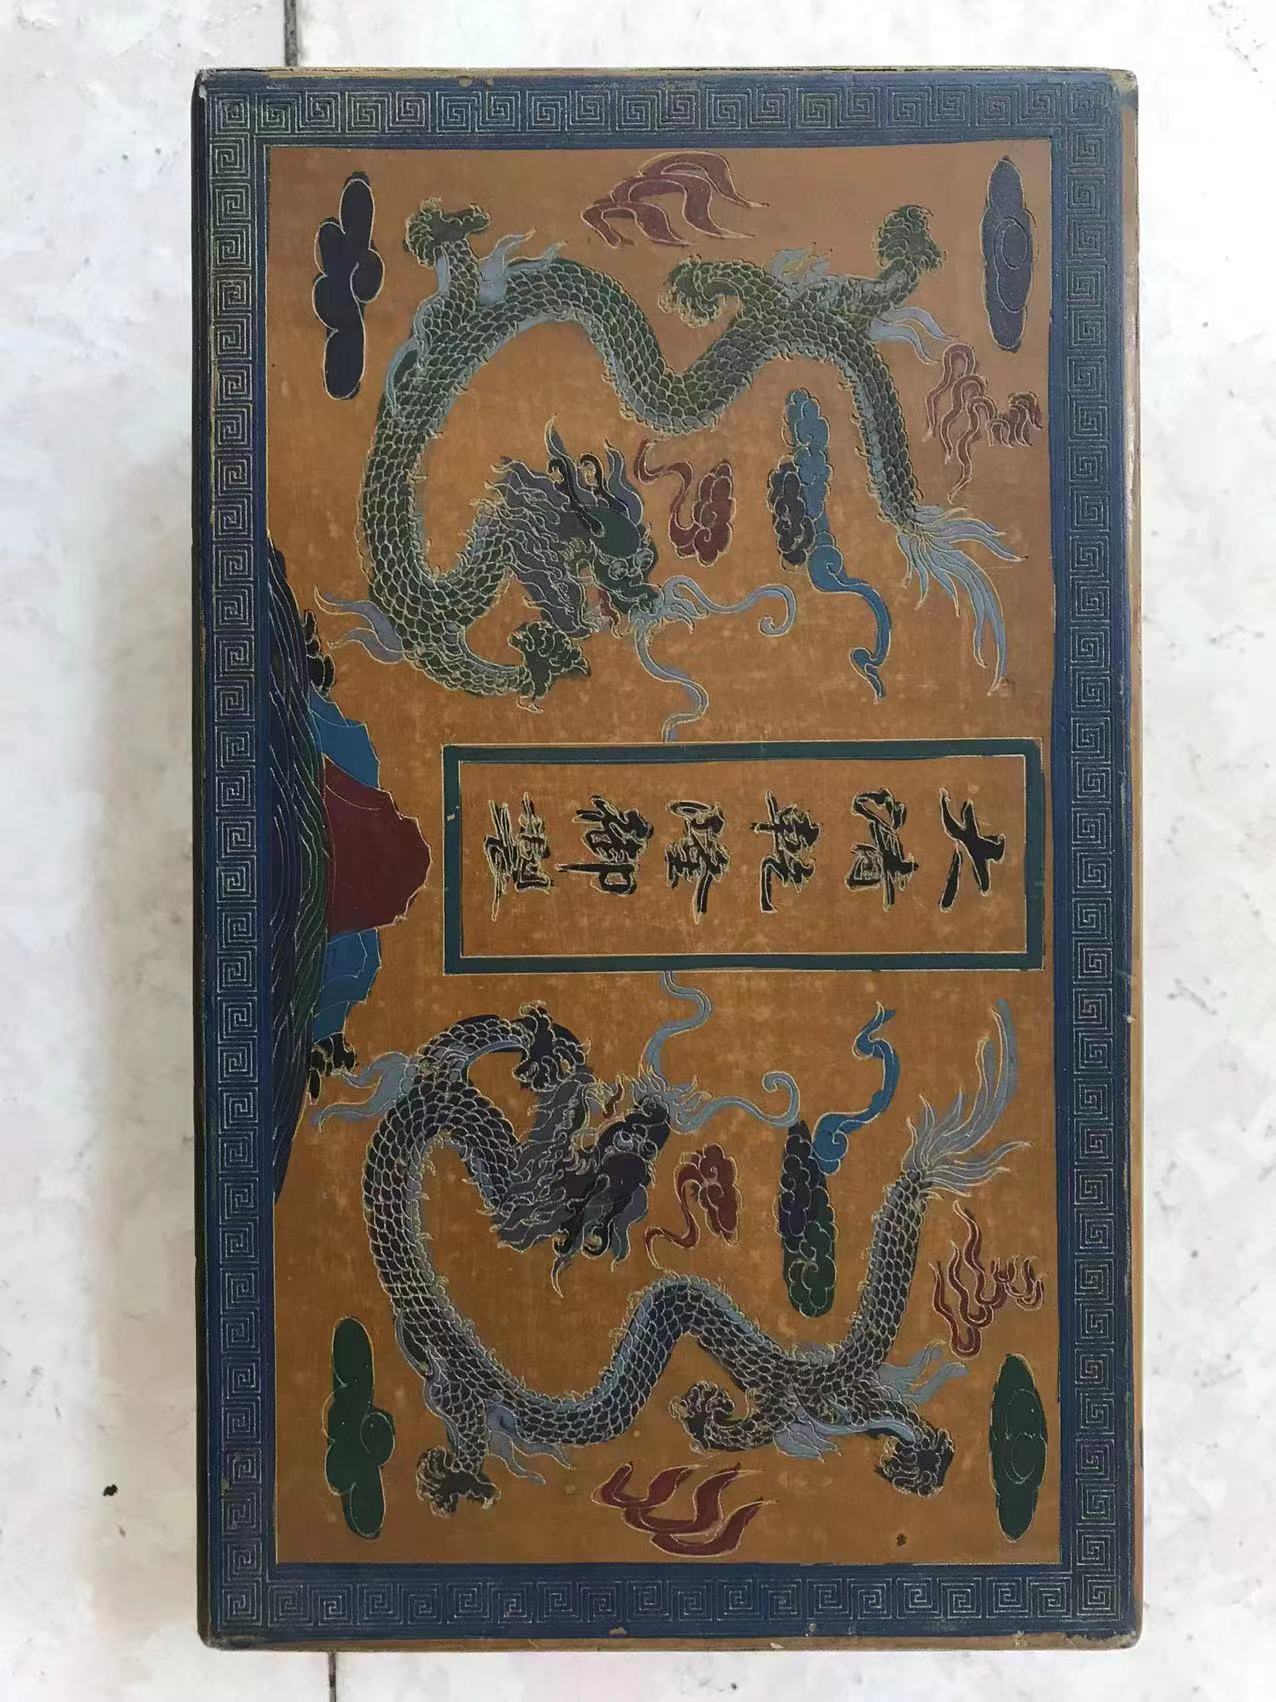 大清乾隆御製